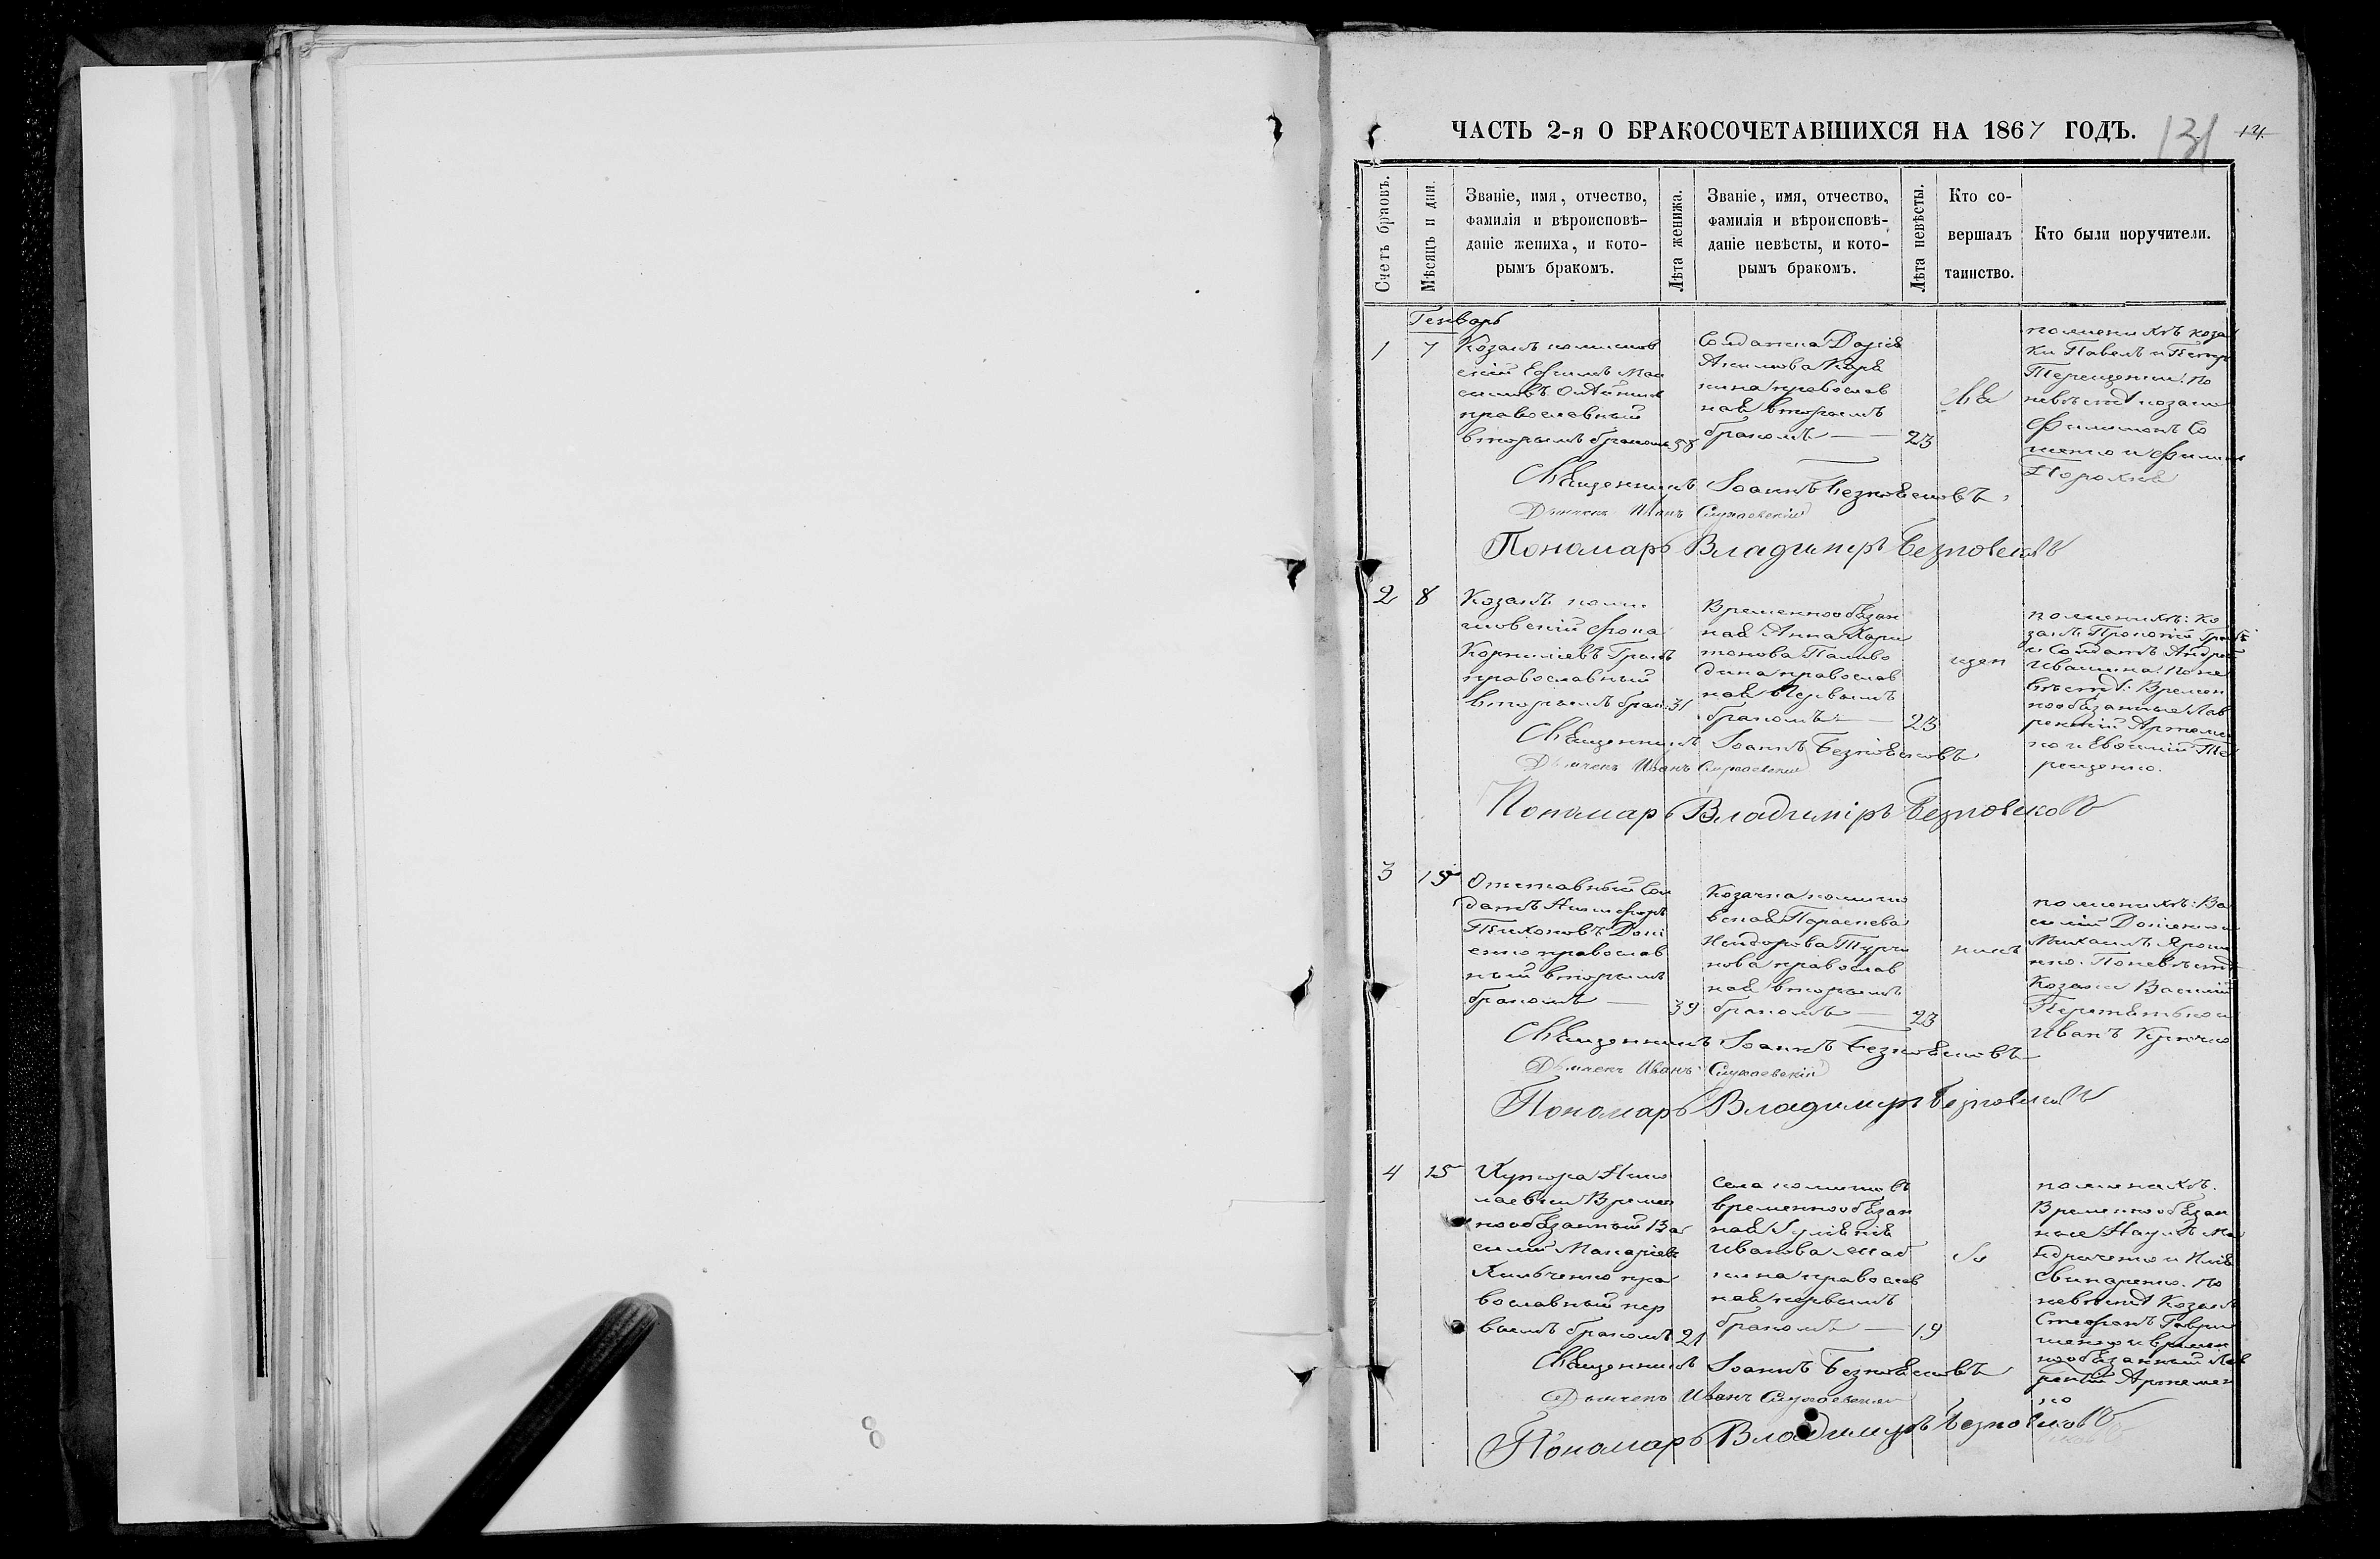 ЧАСТЬ 2-я О БРАКОСОЧЕТАВШИХСЯ НА 1867 ГОДЪ.
131
14.
Счетъ браовъ.
Мѣсяцъ и дни.
Званіе, имя, отчество,
фамилія и вѣроисповѣ-
даніе жениха, и кото-
рымъ бракомъ.
Лѣта женижа.
Званіе, имя, отчество,
фамилія и вѣроисповѣ-
даніе невѣсты, и кото-
рымъ бракомъ.
Лѣта невѣсты.
Кто со-
вершалъ
таинство.
Кто были поручители.
Генварь
1
7
Козакъ
скій Ефимъ Мак
симовъ
православный
вторымъ бракомъ 38
Солдатка Дарія
Акимова
кина православ
ная вторымъ
бракомъ — 23
Свя
по женихѣ коза
ки Павелъ и Петръ
Терещенки. По
невѣстѣ козаки
Филимонъ Со
Священникъ Іоаннъ Безповѣсковъ
Дьячекъ Иванъ
Пономарь Владимиръ Безповѣсковъ
2
8
Козакъ
Фома
Корниліевъ
православный
вторымъ брак. 31
Временнообязан
ная Анна Хари
тонова Паливо
дина православ
ная первымъ
бракомъ — 23
щен
по женихѣ: ко
закъ Прокопій
и Солдатъ Андрей
Ивашина. По не
вѣстѣ: Времен
нообязанные Лав
рентій Артемен
ко и Евфимій Те
рещенко.
Священникъ Іоаннъ Безповѣсковъ
Дьячекъ Иванъ
Пономарь Владимиръ Безповѣсковъ
3
15
Отставный Сол
датъ Никифоръ
Тихоновъ
енко православ
ный вторымъ
бракомъ — 39
Козачка
Параскева
Исидорова Турчи
нова православ
ная вторымъ
бракомъ — 23
никъ
по женихѣ: Ва
силій
Михаилъ Яроше
нко. По невѣстѣ
Козаки Василій
Иванъ Крючко
Священникъ Іоаннъ Безповѣсковъ
Дьячекъ Иванъ
Пономарь Владимиръ Безповѣсковъ
4
15
Хутора Нико
лаевки Времен
нообязанный Ва
силій Макаріевъ
Хильченко пра
вославный пер
вымъ бракомъ 21
Села
временнообязан
ная Іуліанія
Иванова
кина православ
ная первымъ
бракомъ — 19
Іо
по женихѣ.
Временнообязан
ные Наумъ
и Илія
Свинаренко. По
невѣстѣ Козакъ
Стефанъ Гаври
шенко и времен
нообязанный Лав
рентій Артемен
ко
Священникъ Іоаннъ Безповѣсковъ
Дьячекъ Иванъ
Пономарь Владимиръ Безповѣсковъ
8